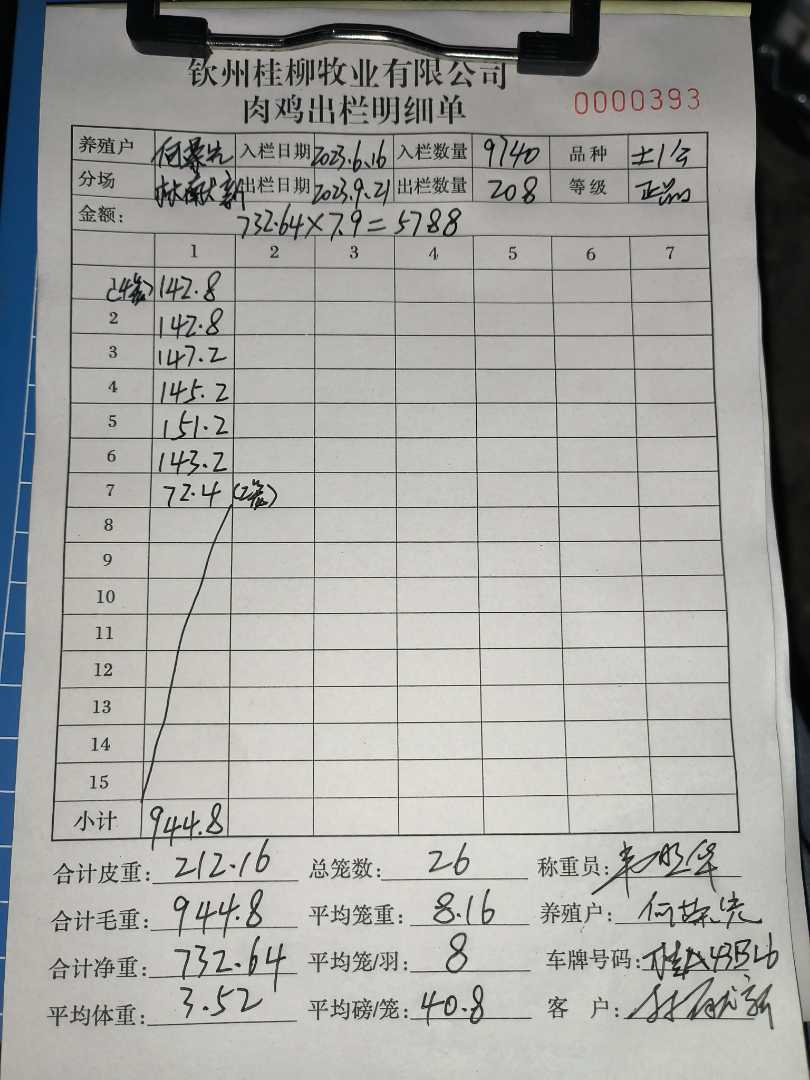 钦州桂柳牧业有限公司
肉鸡出栏明细单 0000393
养殖户 入栏日期 2023.6.16 入栏数量 9740 品种
分场 出栏日期 2023.9.21 出栏数量 208 等级 正品
金额: 732.64×7.9=5788
1 2 3 4 5 6 7
(4笼) 142.8
2 142.8
3 147.2
4 145.2
5 151.2
6 143.2
7 72.4 (2笼)
8
9
10
11
12
13
14
15
小计 944.8
合计皮重: 212.16 总笼数: 26 称重员:
合计毛重: 944.8 平均笼重: 8.16 养殖户:
合计净重: 732.64 平均笼/羽: 8 车牌号码:
平均体重: 3.52 平均磅/笼: 40.8 客 户: